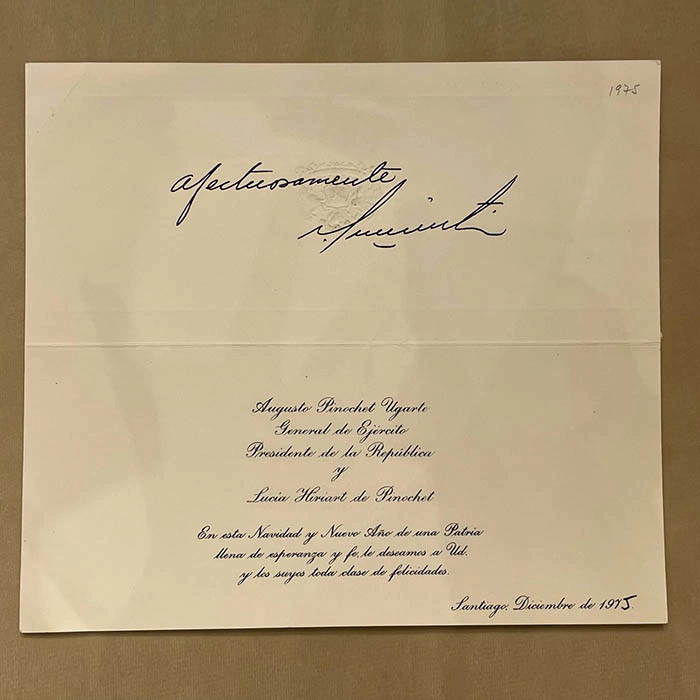 1975
afectuosamente
Augusto Pinochet Ugarte
General de Ejército
Presidente de la República
y
Lucía Hiriart de Pinochet
En esta Navidad y Nuevo Año de una Patria
llena de esperanza y fe, le deseamos a Ud.
y los suyos toda clase de felicidades.
Santiago, Diciembre de 1975.